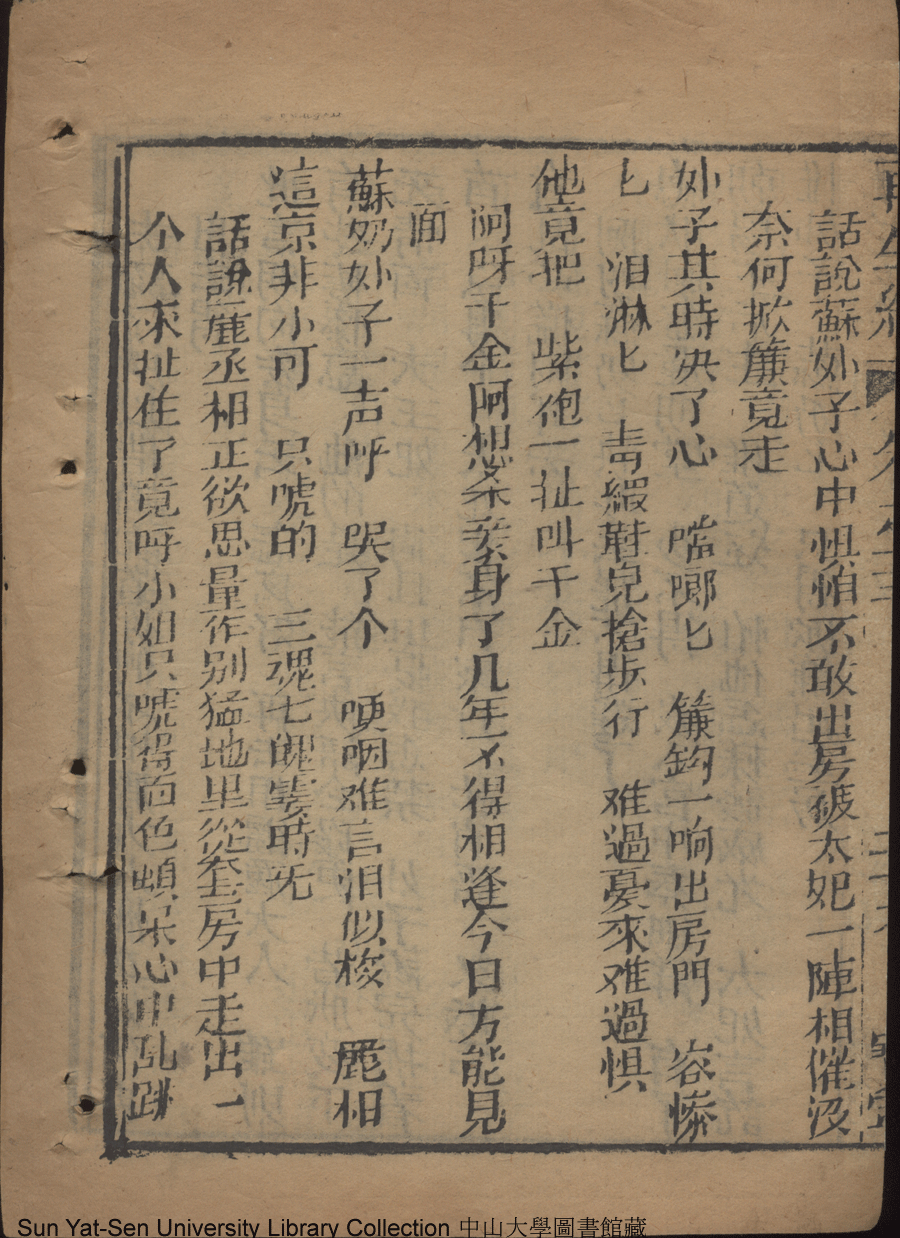 話說蘇妳子心中惧怕不敢出房被太妃一陣相催没
奈何掀簾竟走
妳子其時决了心 喘啷匕 簾鈎一响出房門 容慘
匕 泪淋匕 青緞鞋兒搶步行 难過憂來难過惧
他竟把 紫袍一扯叫千金
阿呀千金阿想柔妾身了几年不得相逢今日方能見
面
蘇奶妳子一声呼 哭了个 哽咽难言泪似梭 麗相
這京非小可 只唬的 三魂七魄霎時无
話說麗丞相正欲思量作别猛地里從套房中走出一
个人來扯住了竟呼小姐只唬得面色頓呆心中乱跳
Sun Yat-Sen University Library Collection 中山大學圖書館藏